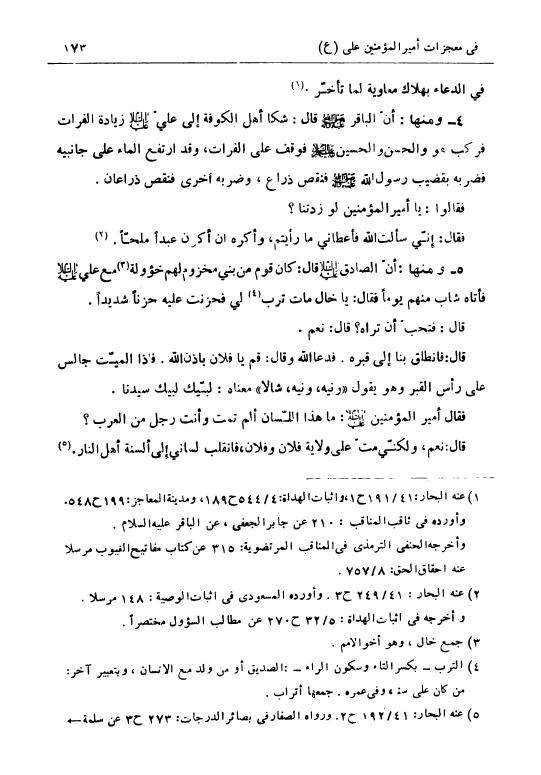 في معجزات أميرالمؤمنين علي (ع) ١٧٣
في الدعاء بهلاك معاوية لما تأخّر .(١)
٤ـ ومنها : أنّ الباقر ﷺ قال : شكا أهل الكوفة إلى عليّ عليه السلام زيادة الفرات
فركب هو والحسن والحسين عليهما السلام فوقف على الفرات، وقد ارتفع الماء على جانبيه
فضربه بقضيب رسول الله ﷺ فنقص ذراع ، وضربه أخرى فنقص ذراعان .
فقالوا : يا أميرالمؤمنين لو زدتنا ؟
فقال: إنّي سألت الله فأعطاني ما رأيتم، وأكره ان أكون عبداً ملحّاً . (٢)
٥ـ ومنها : أنّ الصادق عليه السلام قال: كان قوم من بني مخزوم لهم خؤولة(٣) مع علي عليه السلام
فأتاه شاب منهم يوماً فقال: يا خال مات ترب(٤) لي فحزنت عليه حزناً شديداً .
قال : فتحبّ أن تراه؟ قال: نعم .
قال: فانطلق بنا إلى قبره . فدعا الله وقال: قم يا فلان باذن الله . فاذا الميّت جالس
على رأس القبر وهو يقول «ونيه، ونيه، شالا» معناه : لبّيك لبيك سيدنا .
فقال أمير المؤمنين عليه السلام : ما هذا اللسان ألم تمت وأنت رجل من العرب ؟
قال: نعم، ولكنّي متّ على ولاية فلان وفلان، فانقلب لساني إلى ألسنة أهل النار.(٥)
١) عنه البحار: ١٩١/٤١ح١، واثبات الهداة: ٥٤٤/٤ح١٨٩، ومدينة المعاجز: ١٩٩ح٥٤٨.
وأورده في ثاقب المناقب : ٢١٠ عن جابر الجعفي ، عن الباقر عليه السلام .
وأخرجه الحنفي الترمذي في المناقب المرتضوية: ٣١٥ عن كتاب مفاتيح الغيوب مرسلا
عنه احقاق الحق: ٧٥٧/٨ .
٢) عنه البحار : ٢٤٩/٤١ ح٣ . وأورده المسعودي في اثبات الوصية : ١٤٨ مرسلا .
و أخرجه في اثبات الهداة : ٣٢/٥ ح٢٧٠ عن مطالب السؤول مختصراً .
٣) جمع خال ، وهو أخو الام .
٤) الترب ـ بكسر التاء وسكون الراء ـ : الصديق أو من ولد مع الانسان ، وبتعبير آخر:
من كان على سنه وفي عمره . جمعها أتراب .
٥) عنه البحار: ١٩٢/٤١ ح٢. ورواه الصفار في بصائر الدرجات: ٢٧٣ ح٣ عن سلمة ←